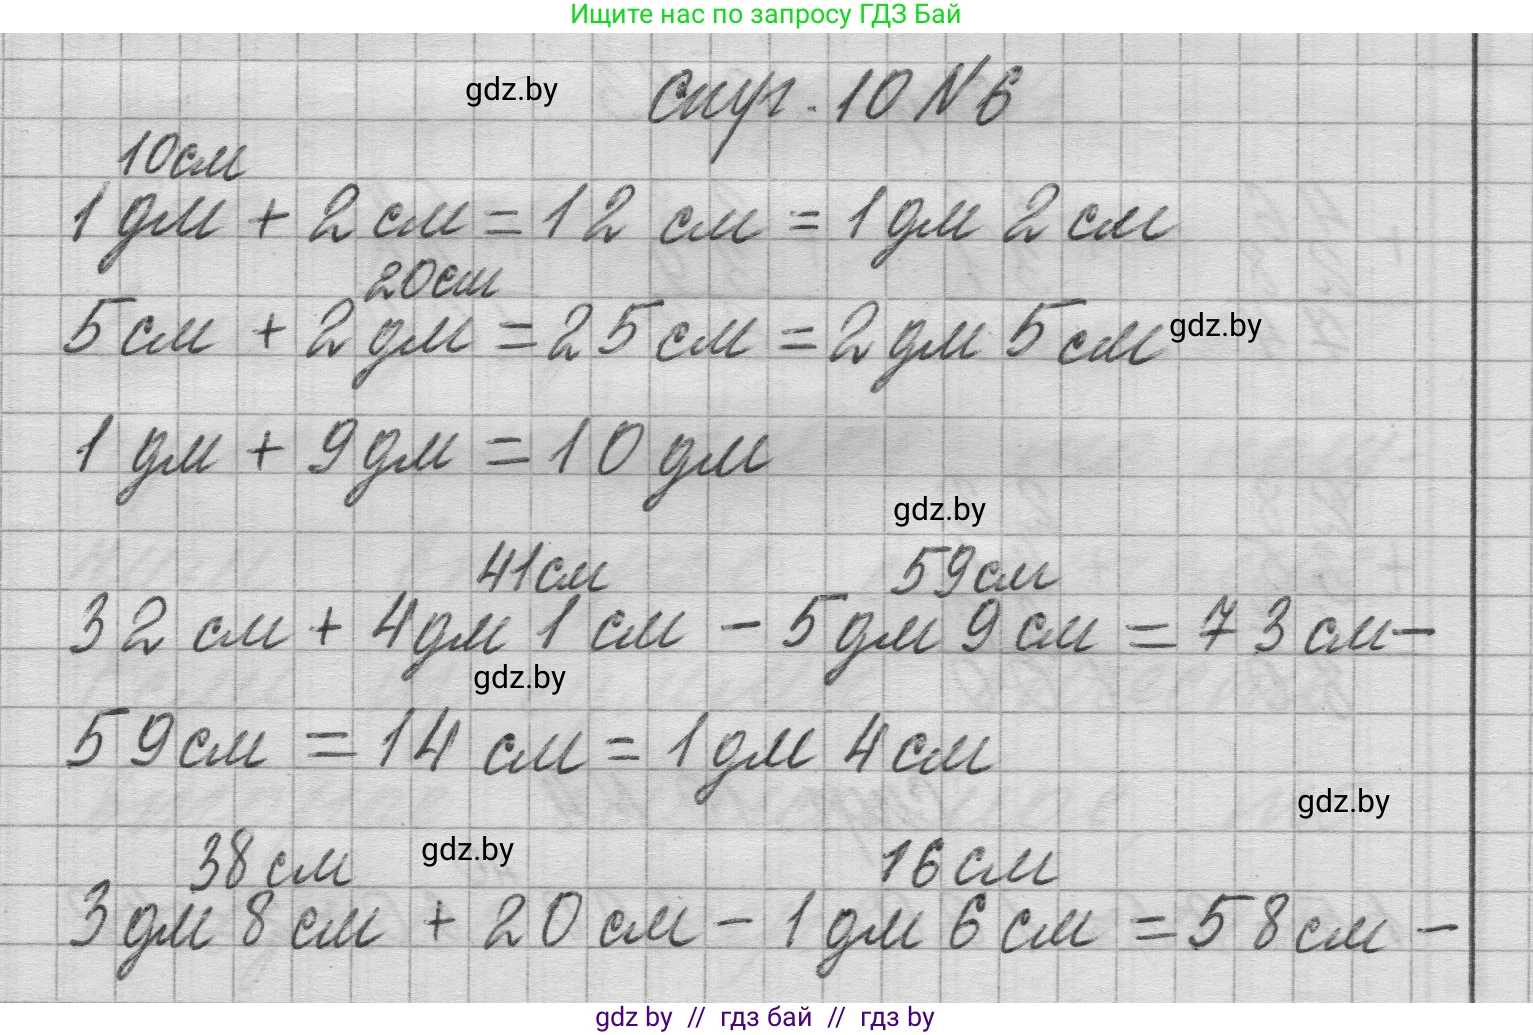 Ищите нас по запросу ГДЗ Бай
gdz.by
стр. 10 №6
10см
1 дм + 2 см = 12 см = 1 дм 2 см
20см
5 см + 2 дм = 25 см = 2 дм 5 см
gdz.by
1 дм + 9 дм = 10 дм
gdz.by
41см 59см
32 см + 4 дм 1 см - 5 дм 9 см = 73 см -
gdz.by
59 см = 14 см = 1 дм 4 см
gdz.by
38 см gdz.by 16 см
3 дм 8 см + 20 см - 1 дм 6 см = 58 см -
gdz by // гдз бай // гдз by